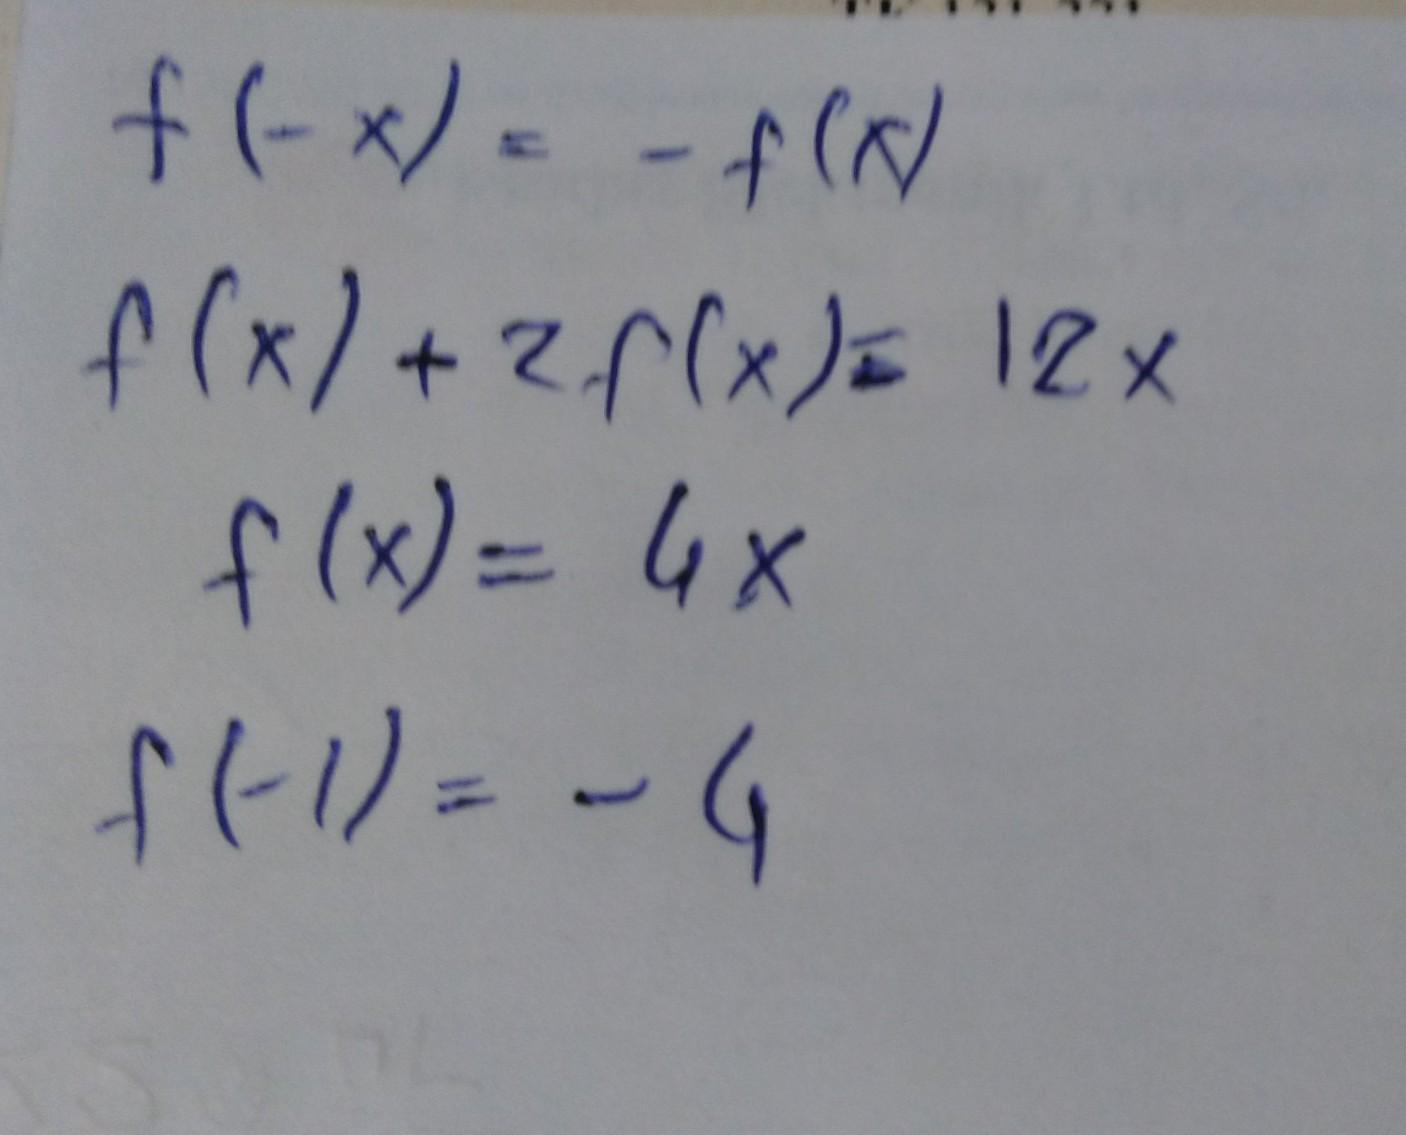 f(-x) = -f(x)
f(x) + 2f(x) = 12x
f(x) = 4x
f(-1) = -4